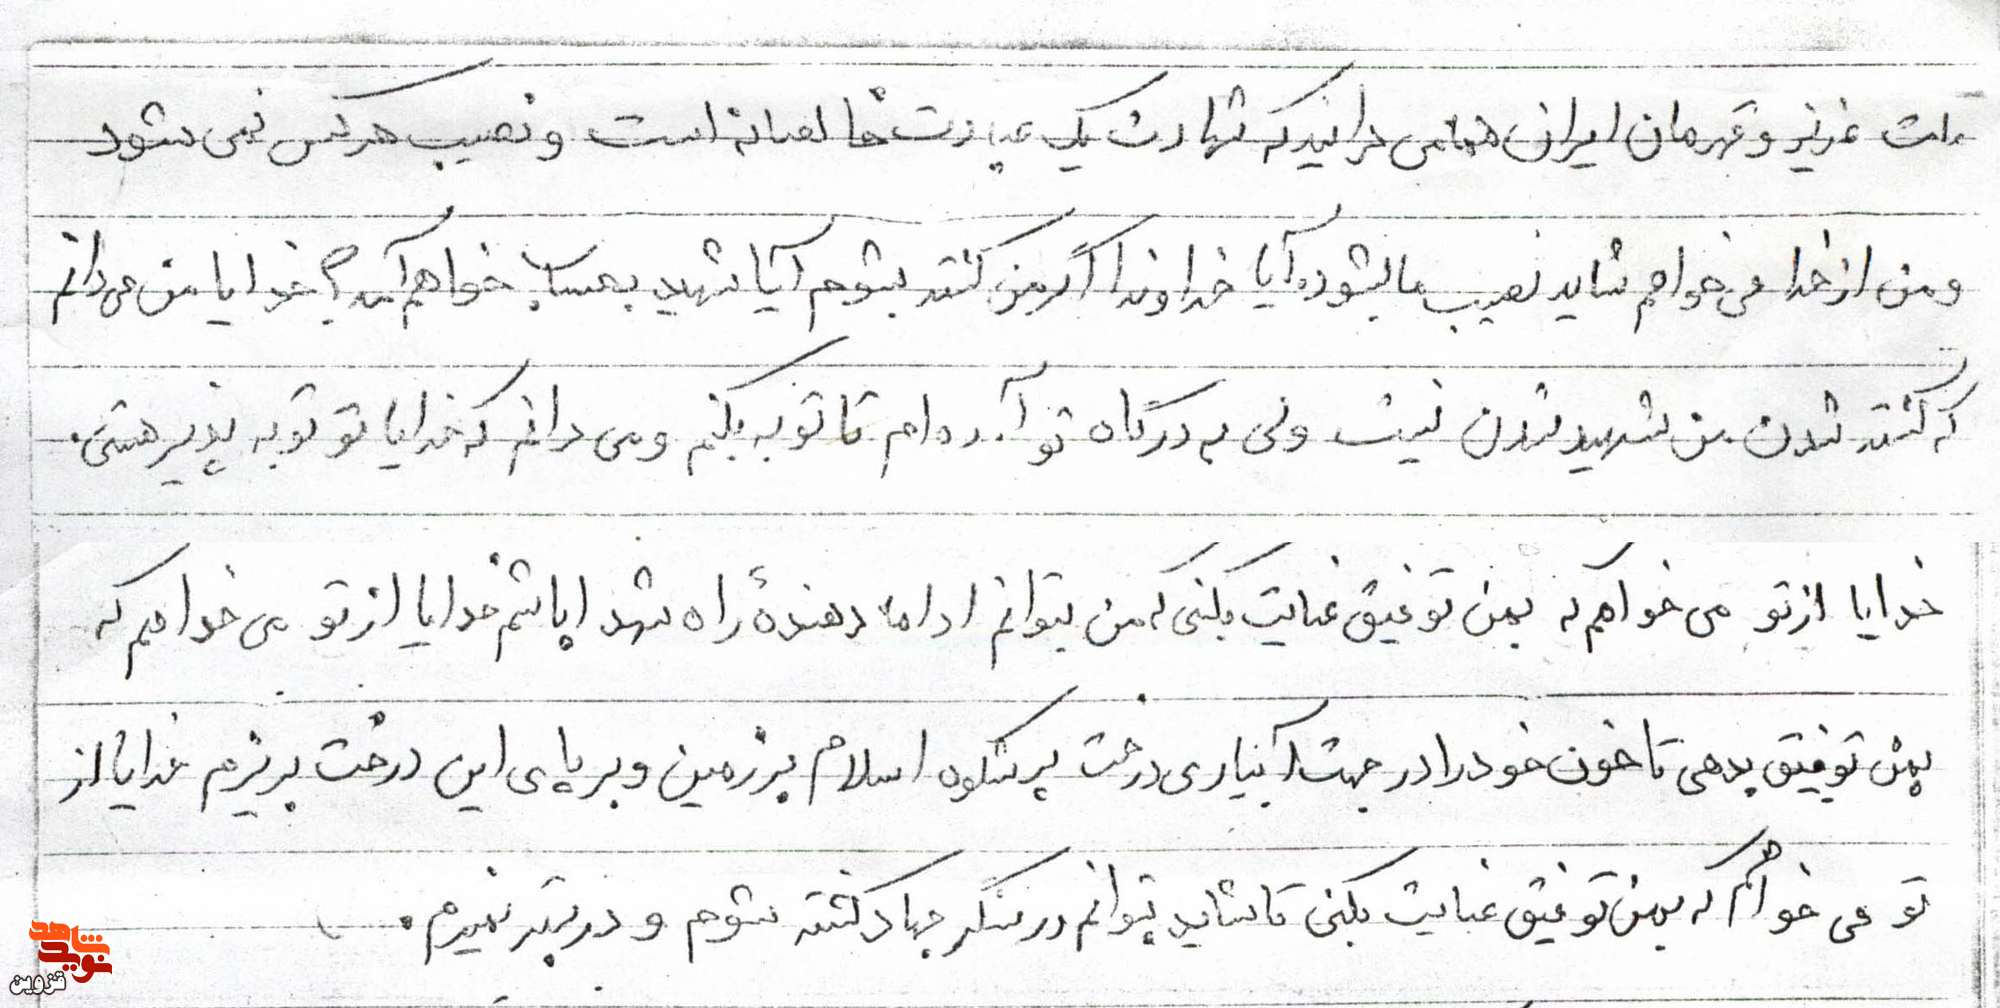 ملت عزیز و قهرمان ایران همه می دانید که شهادت یک عبادت خالصانه است و نصیب هر کس نمی شود
و من از خدا می خواهم شاید نصیب ما بشود آیا خداوندا اگر من کشته بشوم آیا شهید بحساب خواهم آمد؟ خدایا من می دانم
که کشته شدن من شهید شدن نیست ولی به درگاه تو آمده ام تا توبه بکنم و می دانم که خدایا تو توبه پذیر هستی.
خدایا از تو می خواهم که بمن توفیق عنایت بکنی که من بتوانم ادامه دهندهٔ راه شهدا باشم خدایا از تو می خواهم که
بمن توفیق بدهی تا خون خود را در جهت آبیاری درخت پر شکوه اسلام بر زمین و بر پای این درخت بریزم خدایا از
تو می خواهم که بمن توفیق عنایت بکنی تا شاید بتوانم در سنگر جهاد کشته شوم و در بستر نمیرم.
نوید شاهد
قزوین